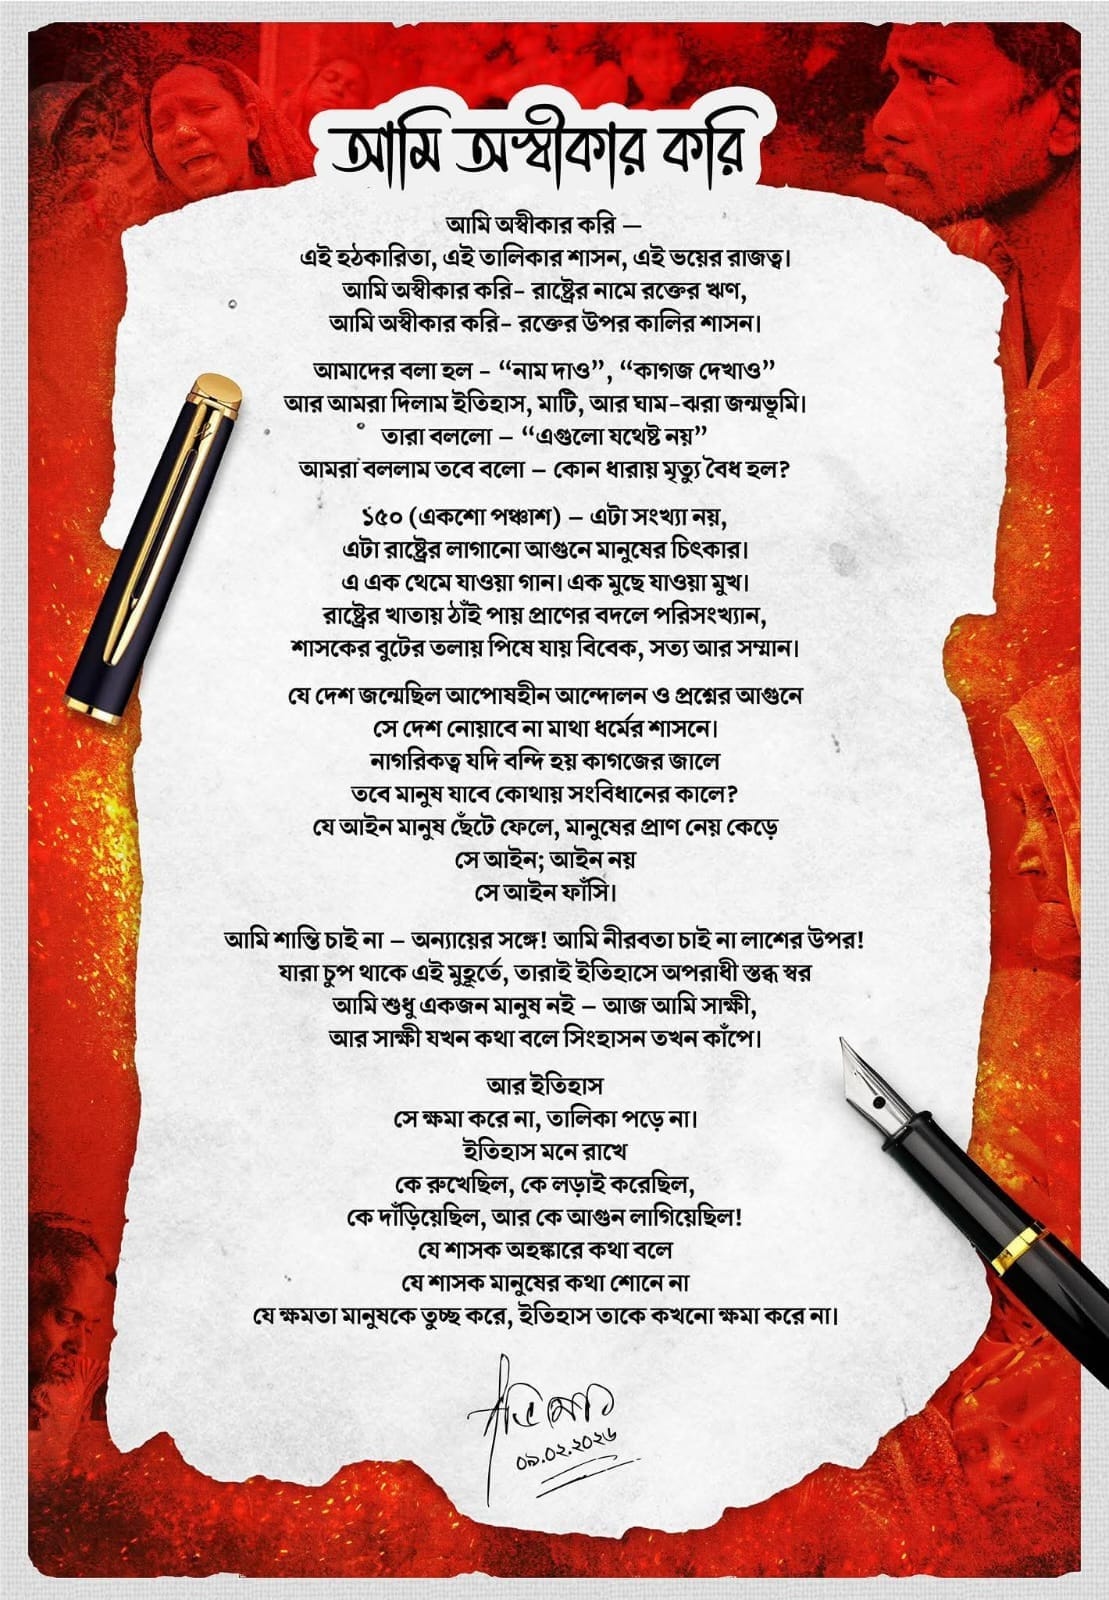 আমি অস্বীকার করি
আমি অস্বীকার করি —
এই হঠকারিতা, এই তালিকার শাসন, এই ভয়ের রাজত্ব।
আমি অস্বীকার করি- রাষ্ট্রের নামে রক্তের ঋণ,
আমি অস্বীকার করি- রক্তের উপর কালির শাসন।
আমাদের বলা হল - “নাম দাও”, “কাগজ দেখাও”
আর আমরা দিলাম ইতিহাস, মাটি, আর ঘাম-ঝরা জন্মভূমি।
তারা বললো – “এগুলো যথেষ্ট নয়”
আমরা বললাম তবে বলো – কোন ধারায় মৃত্যু বৈধ হল?
১৫০ (একশো পঞ্চাশ) – এটা সংখ্যা নয়,
এটা রাষ্ট্রের লাগানো আগুনে মানুষের চিৎকার।
এ এক থেমে যাওয়া গান। এক মুছে যাওয়া মুখ।
রাষ্ট্রের খাতায় ঠাঁই পায় প্রাণের বদলে পরিসংখ্যান,
শাসকের বুটের তলায় পিষে যায় বিবেক, সত্য আর সম্মান।
যে দেশ জন্মেছিল আপোষহীন আন্দোলন ও প্রশ্নের আগুনে
সে দেশ নোয়াবে না মাথা ধর্মের শাসনে।
নাগরিকত্ব যদি বন্দি হয় কাগজের জালে
তবে মানুষ যাবে কোথায় সংবিধানের কালে?
যে আইন মানুষ ছেঁটে ফেলে, মানুষের প্রাণ নেয় কেড়ে
সে আইন; আইন নয়
সে আইন ফাঁসি।
আমি শান্তি চাই না – অন্যায়ের সঙ্গে! আমি নীরবতা চাই না লাশের উপর!
যারা চুপ থাকে এই মুহূর্তে, তারাই ইতিহাসে অপরাধী স্তব্ধ স্বর
আমি শুধু একজন মানুষ নই – আজ আমি সাক্ষী,
আর সাক্ষী যখন কথা বলে সিংহাসন তখন কাঁপে।
আর ইতিহাস
সে ক্ষমা করে না, তালিকা পড়ে না।
ইতিহাস মনে রাখে
কে রুখেছিল, কে লড়াই করেছিল,
কে দাঁড়িয়েছিল, আর কে আগুন লাগিয়েছিল!
যে শাসক অহঙ্কারে কথা বলে
যে শাসক মানুষের কথা শোনে না
যে ক্ষমতা মানুষকে তুচ্ছ করে, ইতিহাস তাকে কখনো ক্ষমা করে না।
০৯.০২.২০২৬